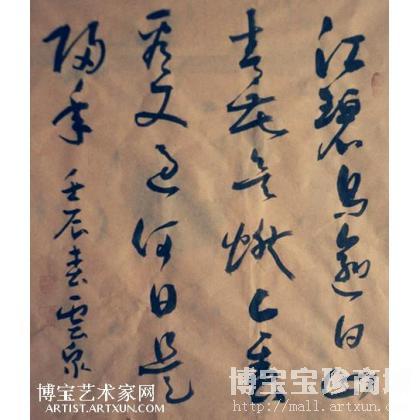 江碧鳥逾白山
青花欲燃今春
看又過何日是
歸年 壬辰春雲泉
博宝宝珍商城
http://mall.artxun.com
博宝艺术家网
ARTIST.ARTXUN.COM